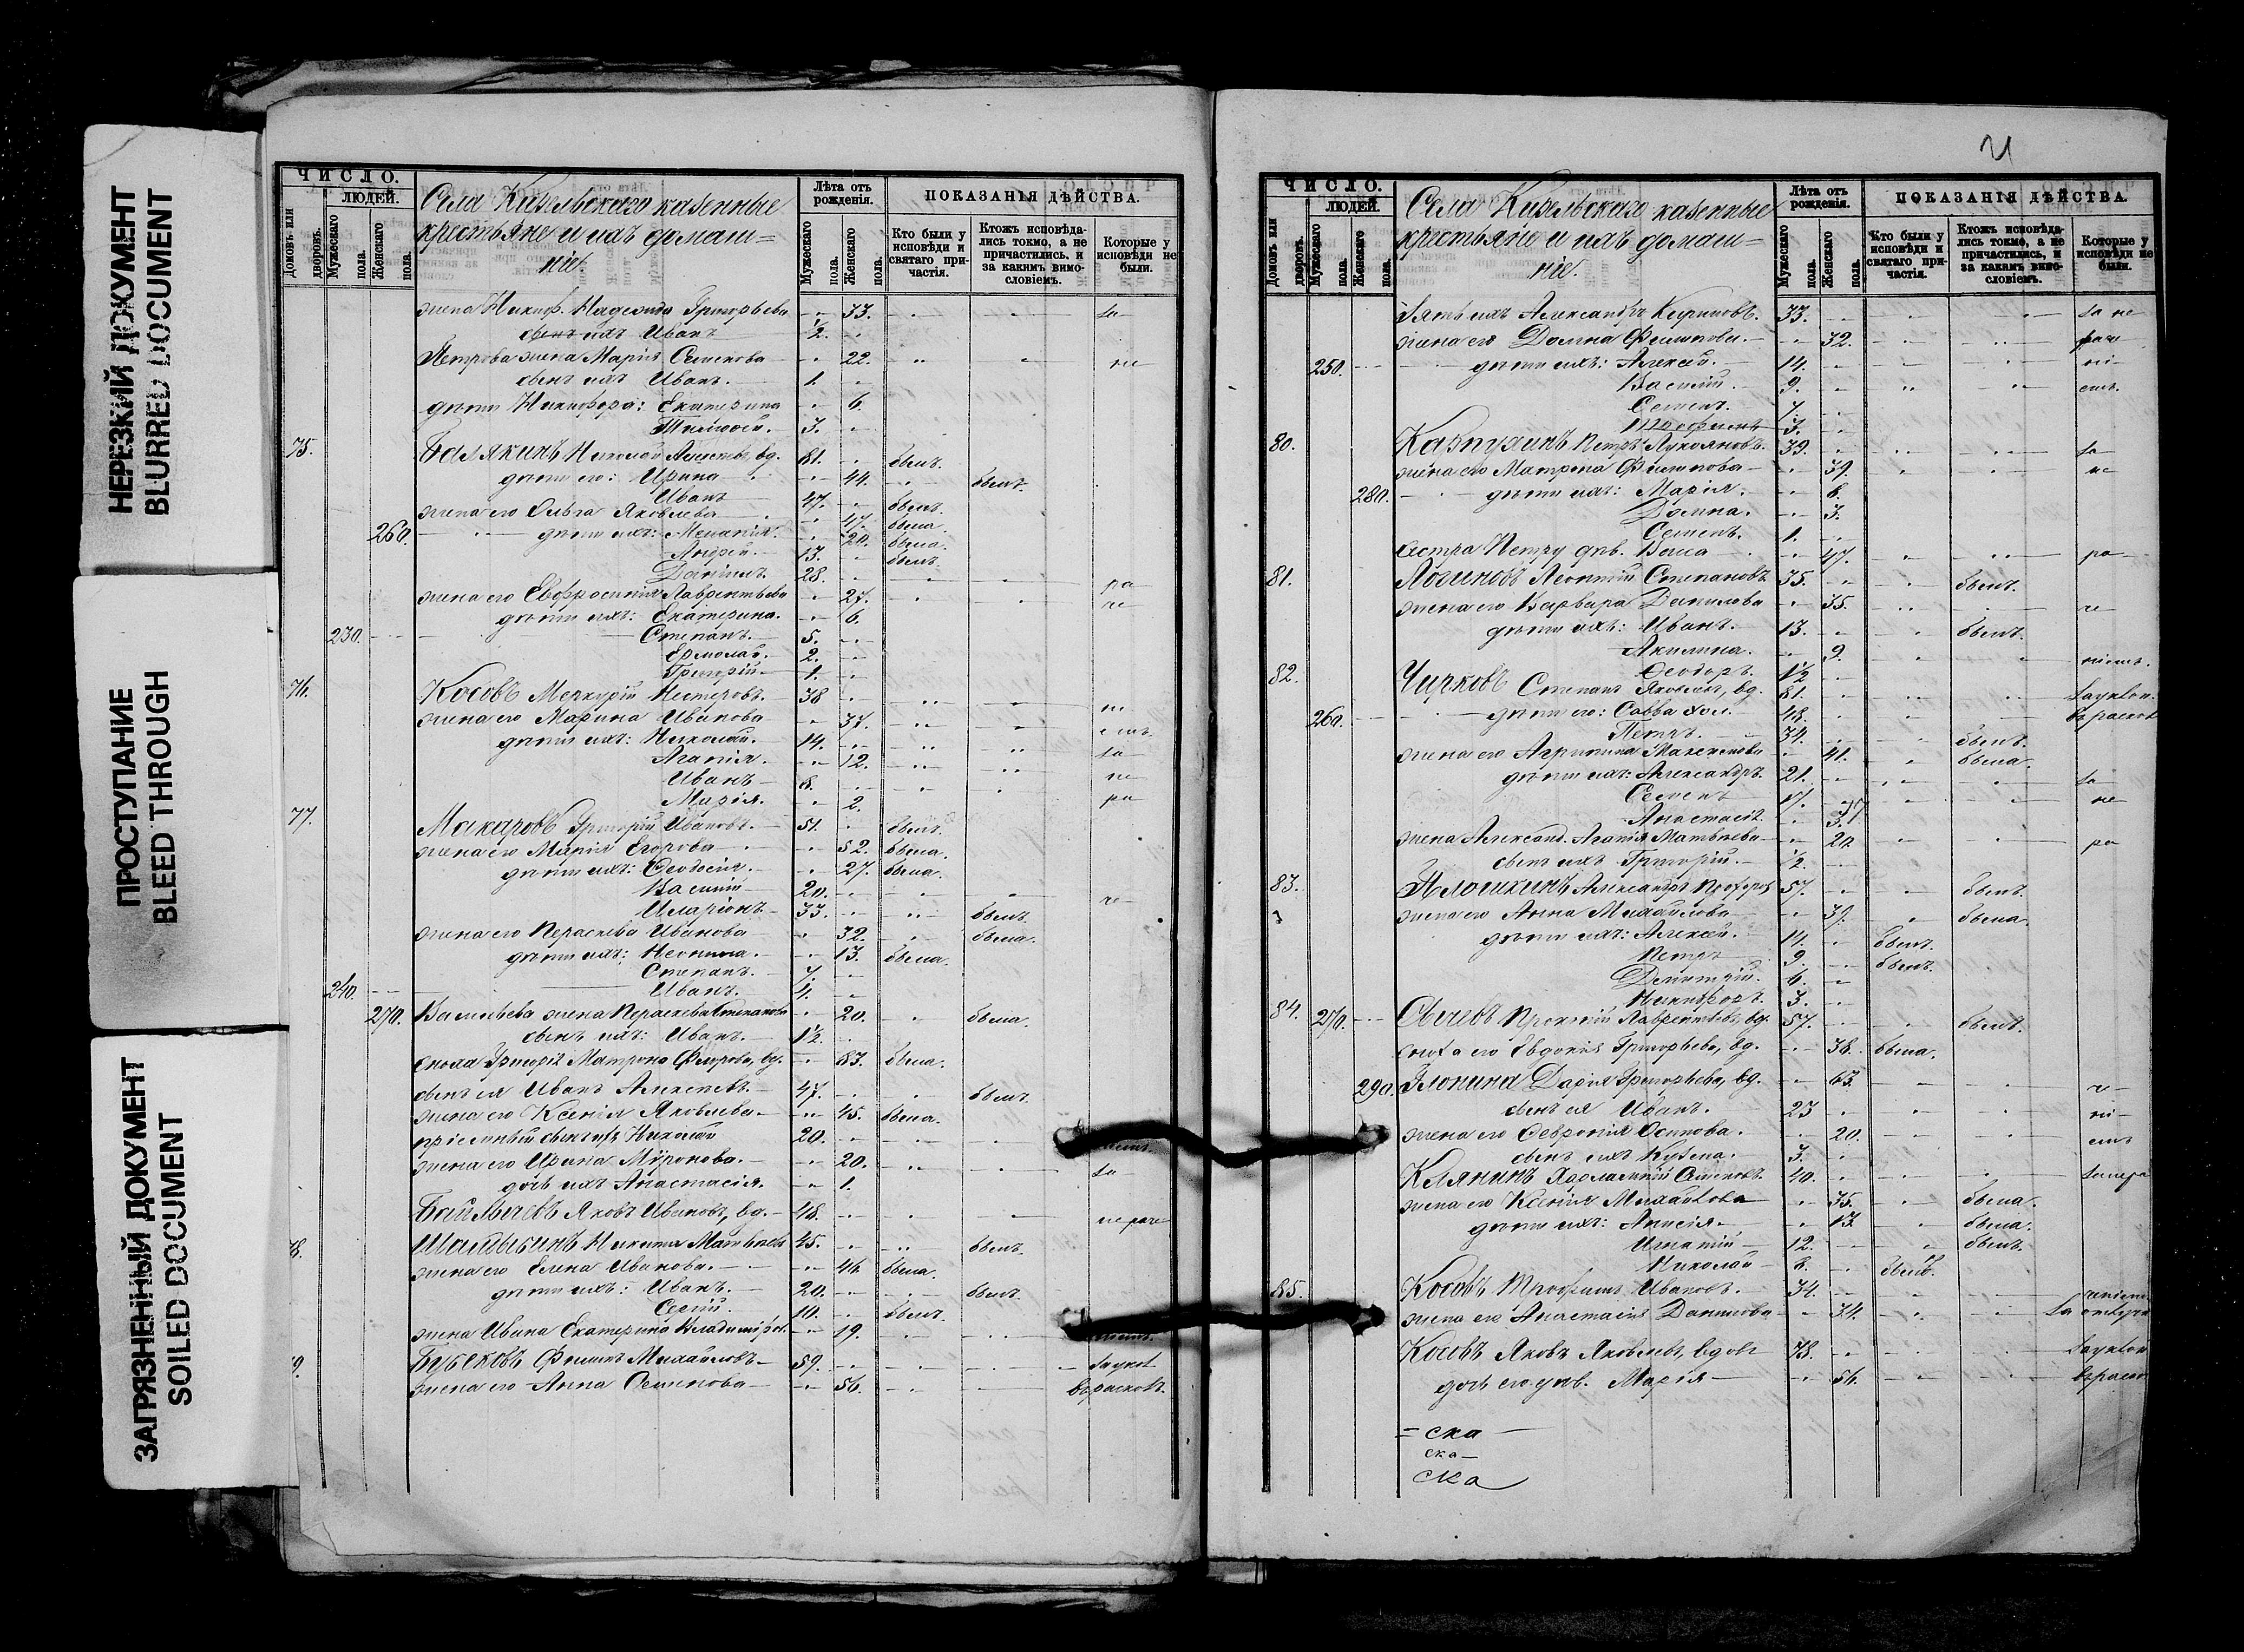 НЕРЕЗКИЙ ДОКУМЕНТ
BLURRED DOCUMENT
ПРОСТУПАНИЕ
BLEED THROUGH
ЗАГРЯЗНЕННЫЙ ДОКУМЕНТ
SOILED DOCUMENT
ЧИСЛО.
Домовъ или дворовъ.
ЛЮДЕЙ.
Мужескаго пола.
Женскаго пола.
Села Кизельскаго казенные
крестьяне и ихъ домаш=
ніе
Лѣта отъ рожденія.
Мужескаго пола.
Женскаго пола.
ПОКАЗАНІЯ ДѢЙСТВА.
Кто были у исповѣди и святаго причастія.
Ктожъ исповѣдались токмо, а не причастились, и за какимъ винословіемъ.
Которые у исповѣди не были.
жена Никиф. Надежда Григорьева 33. за
сынъ ихъ Иванъ 1/2.
Петрова жена Марія Семенова 22. не
сынъ ихъ Иванъ. 1.
дѣти Никифора: Екатерина 6.
Тимофей. 3.
75. Балякинъ Николай Алексѣевъ, вд. 81. былъ.
дѣти его: Ирина 44. была.
Иванъ 47. былъ.
жена его Ольга Яковлева 47. была.
260. дѣти ихъ: Меланія. 20. была.
Андрей. 13. былъ.
Даніилъ. 28. ра
жена его Евфросинія Лаврентьева 27. че
дѣти ихъ: Екатерина. 6.
230. Степанъ. 5.
Ермолай. 2.
Григорій 1.
76. Косовъ Меркурій Нестеровъ. 38 ні
жена его Марина Иванова 37. емъ.
дѣти ихъ: Николай. 14. за
Агапія. 12. не
Иванъ 8. ра
Марія. 2.
77. Макаровъ Григорій Ивановъ. 51. былъ.
жена его Марія Егорова 52. была.
дѣти ихъ: Феодосія. 27. была.
Василій 20. че
Иларіонъ 33. былъ.
жена его Параскева Иванова 32. была.
дѣти ихъ: Неонила. 13. была.
Степанъ. 7.
240. Иванъ. 4.
270. Васильева жена Параскева Степанова 20. была.
сынъ ихъ: Иванъ. 1/2.
сноха Григорія Матрона Федорова, вд. 83. была.
сынъ ея Иванъ Алексѣевъ. 47. былъ.
жена его Ксенія Яковлева. 45. была.
пріемный сынъ ихъ Николай 20.
жена его Ирина Миронова. 20. за
дочь ихъ Анастасія. 1.
Яковъ Ивановъ, вд. 48. не раче
8. Шалыгинъ Никита Матвѣевъ 45. былъ.
жена его Елена Иванова. 46. была.
дѣти ихъ: Иванъ. 20. былъ.
Сергій. 10. былъ.
жена Ивана Екатерина Владимиров. 19.
9. Филипъ Михайловъ 59. за укл
жена его Анна Семенова 56. въ расколъ.
ЧИСЛО.
Домовъ или дворовъ.
ЛЮДЕЙ.
Мужескаго пола.
Женскаго пола.
Села Кизельскаго казенные
крестьяне и ихъ домаш=
ніе.
Лѣта отъ рожденія.
Мужескаго пола.
Женскаго пола.
ПОКАЗАНІЯ ДѢЙСТВА.
Кто были у исповѣди и святаго причастія.
Ктожъ исповѣдались токмо, а не причастились, и за какимъ винословіемъ.
Которые у исповѣди не были.
Зять ихъ Александръ Кириловъ. 33. за не
жена его Домна Филипова. 32. раче
250. дѣти ихъ: Алексѣй. 14. ні
Василій. 9. емъ.
Семенъ. 7.
3.
80. Петръ Лукояновъ. 39. за
жена его Матрона Филипова 39. не
280. дѣти ихъ: Марія. 8.
Домна. 3.
Семенъ. 1.
сестра Петру дѣв. Васса 47. ра
81. Логиновъ Леонтій Степановъ 35. былъ.
жена его Варвара Данилова 35. че
дѣти ихъ: Иванъ. 13. былъ.
Акилина. 9. ніемъ.
Феодоръ. 1/2
82. Чирковъ Степанъ Яковлевъ, вд. 81. за уклон.
260. дѣти его: Савва хол. 48. въ раскол
Петръ. 34. былъ.
жена его Агрипина Максимова 41. была.
дѣти ихъ: Александръ 21. за
Семенъ 17. не
Анастасія. 3.
жена Александ. Агапія Матвѣева 20. ра
сынъ ихъ Григорій. 1/2.
83. Александръ 57. былъ.
жена его Анна Михайлова 39. была.
дѣти ихъ: Алексѣй. 14. былъ.
Петръ 9. былъ.
Дмитрій. 6.
Никифоръ. 3.
84. 270. Сычевъ Прокопій Лаврентьевъ, вд. 57. былъ.
сноха его Евдокія Григорьева, вд. 38. была.
290. Дарія Григорьева, вд. 63. че
сынъ ея Иванъ. 23 ні
жена его Февронія Осипова. 20. емъ
сынъ ихъ Кузьма. 3.
Семеновъ 40.
жена его Ксенія Михайлова 35. была.
дѣти ихъ: Анисія. 13. была.
Игнатій 12. былъ.
Николай 8. былъ.
85. Косовъ Трофимъ Ивановъ. 34.
жена его Анастасія Данилова 34.
Косовъ Яковъ Яковлевъ, вдов 78. за уклон
дочь его дѣв. Марія 56. въ раскол
= ска
ска
ска